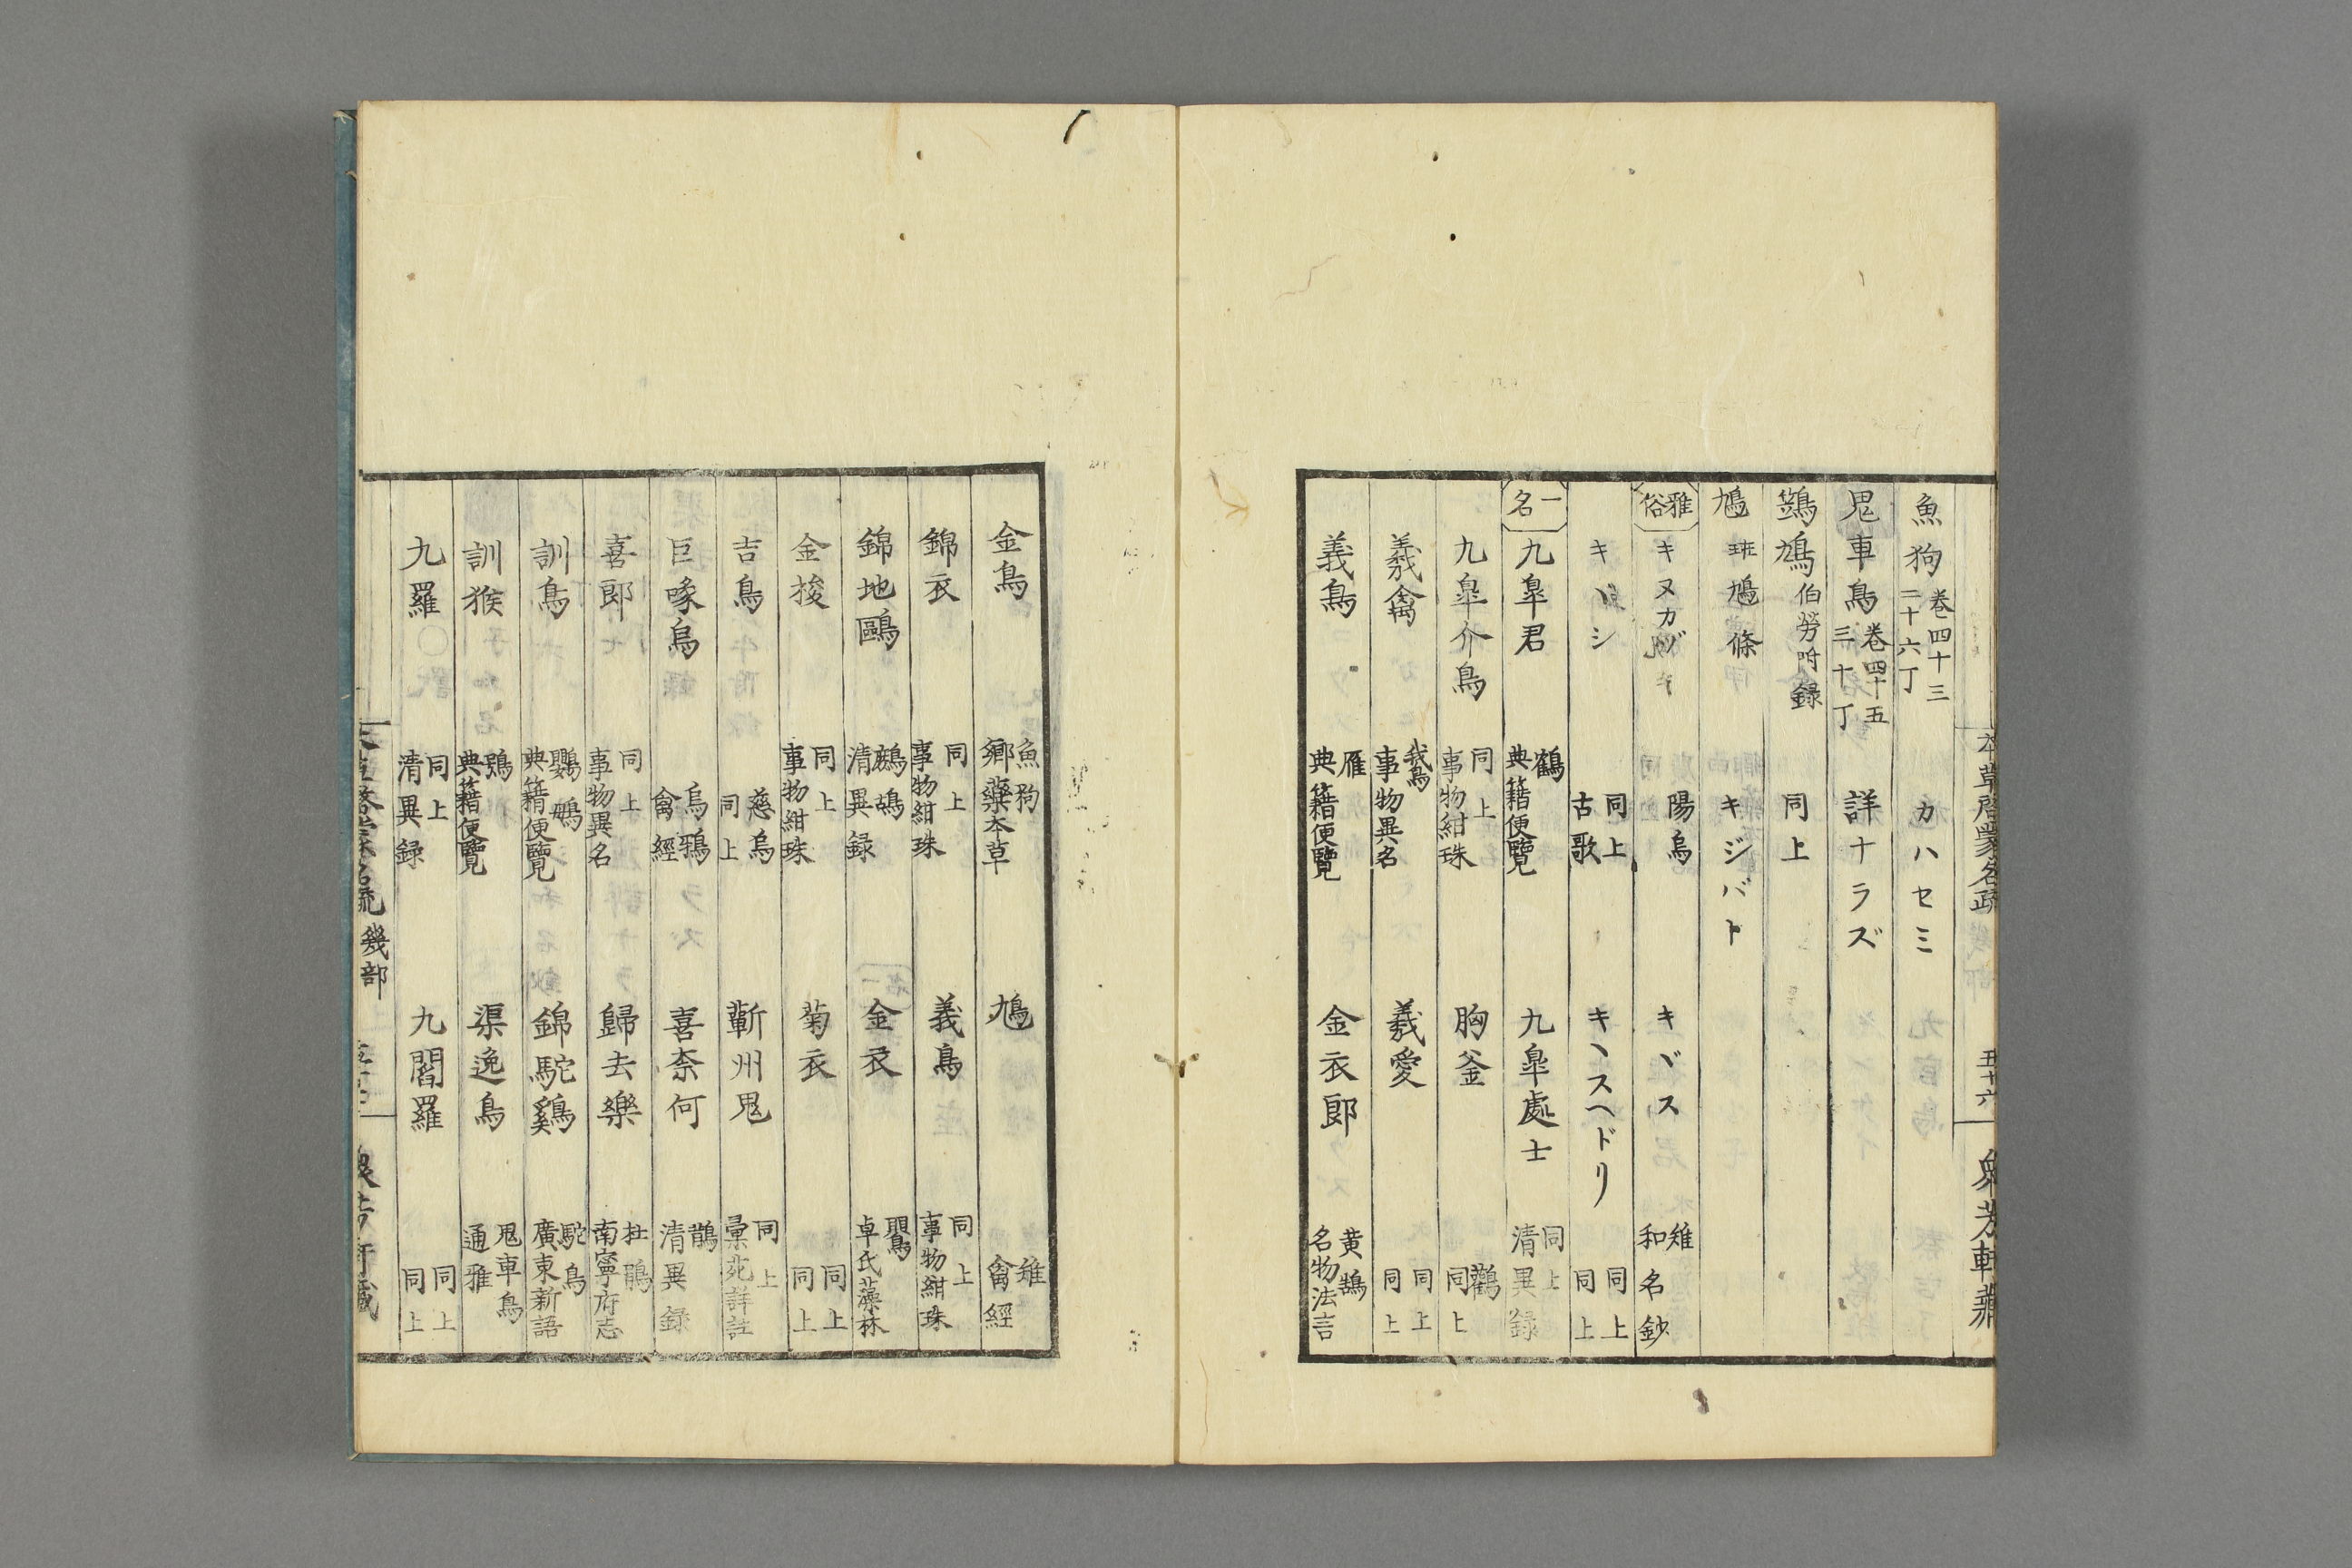 本草啓蒙名疏 五十六 衆芳軒藏
魚狗 卷四十三 二十六丁 カハセミ
鬼車鳥 卷四十五 三十丁 詳ナラズ
鷑鳩 伯勞附録 同上
鳩 斑鳩條 キジバト
雅俗 キヌカヅキ 陽烏 キヾス 雉 和名鈔
キヾシ 同上 古歌 キヽスヘドリ 同上 同上
一名 九皐君 鶴 典籍便覽 九皐處士 同上 清異録
九皐介鳥 同上 事物紺珠 胸釜 鸛 同上
羲禽 鵞 事物異名 羲愛 同上 同上
義鳥 雁 典籍便覽 金衣郎 黄鵠 名物法言
金鳥 魚狗 鄉藥本草 鳩 雉 禽經
錦衣 同上 事物紺珠 義鳥 同上 事物紺珠
錦地鷗 鷓鴣 清異録 金衣 鸎 卓氏藻林
金梭 同上 事物紺珠 菊衣 同上 同上
吉鳥 慈烏 同上 蘄州鬼 同上 彙苑詳註
巨喙烏 烏鴉 禽經 喜奈何 鵲 清異録
喜郎 同上 事物異名 歸去樂 杜鵑 南寧府志
訓鳥 鸚鵡 典籍便覽 錦駝鷄 駝鳥 廣東新語
訓猴 鴞 典籍便覽 渠逸鳥 鬼車鳥 通雅
九羅 同上 清異録 九閻羅 同上 同上
幾部